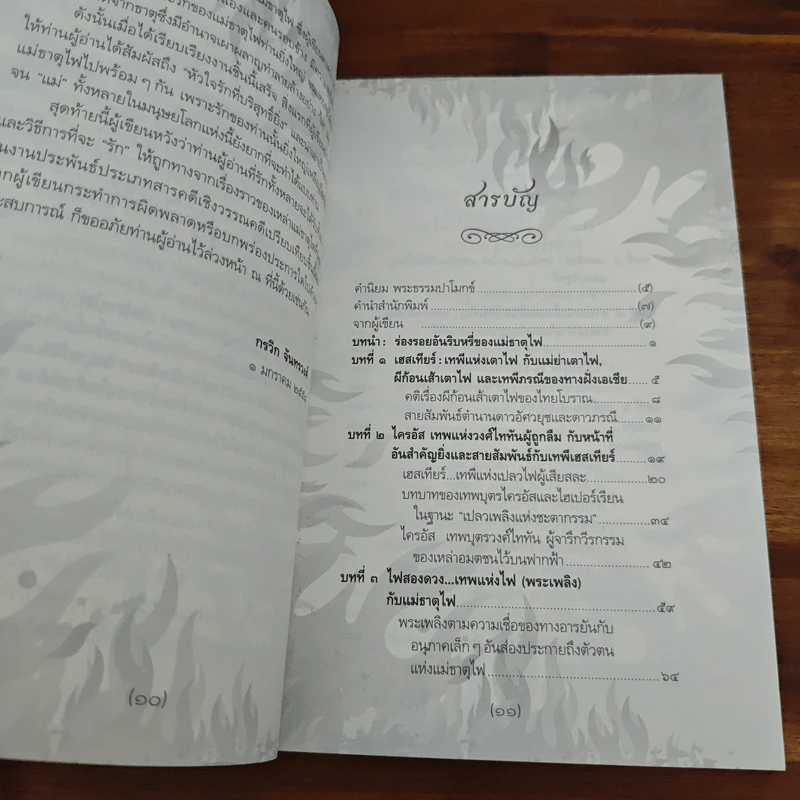 ให้ท่านผู้อ่านได้สัมผัสถึง "หัวใจรักที่บริสุทธิ์ยิ่ง"
แม่ธาตุไฟไปพร้อม ๆ กัน เพราะรักของท่านนั้นยิ่งใหญ่
จน "แม่" ทั้งหลายในมนุษยโลกแห่งนี้ยังยากที่จะทำได้
สุดท้ายนี้ผู้เขียนหวังว่าท่านผู้อ่านที่รักทั้งหลาย
และวิธีการที่จะ "รัก" ให้ถูกทางจากเรื่องราวของเหล่าแม่ธาตุไฟ
งานประพันธ์ประเภทสารคดีเชิงวรรณคดีเปรียบเทียบ
ผู้เขียนกระทำการผิดพลาดหรือบกพร่องประการใด
ก็ขออภัยท่านผู้อ่านไว้ล่วงหน้า ณ ที่นี้ด้วยเช่นกัน
กรวิก จันทรวงศ์
๑ มกราคม ๒๕๕๘
(๑๐)
สารบัญ
คำนิยม พระธรรมปาโมกข์ (๕)
คำนำสำนักพิมพ์ (๗)
จากผู้เขียน (๙)
บทนำ : ร่องรอยอันริบหรี่ของแม่ธาตุไฟ ๑
บทที่ ๑ เฮสเทียร์ : เทพีแห่งเตาไฟ กับแม่ย่าเตาไฟ,
ผีก้อนเส้าเตาไฟ และเทพีภรณีของทางฝั่งเอเชีย ๕
คติเรื่องผีก้อนเส้าเตาไฟของไทยโบราณ ๘
สายสัมพันธ์ตำนานดาวอัศวยุชและดาวภรณี ๑๑
บทที่ ๒ ไครอัส เทพแห่งวงศ์ไททันผู้ถูกลืม กับหน้าที่
อันสำคัญยิ่งและสายสัมพันธ์กับเทพีเฮสเทียร์ ๑๙
เฮสเทียร์...เทพีแห่งเปลวไฟผู้เสียสละ ๒๐
บทบาทของเทพบุตรไครอัสและไฮเปอร์เรียน
ในฐานะ "เปลวเพลิงแห่งชะตากรรม" ๓๔
ไครอัส เทพบุตรวงศ์ไททัน ผู้จารึกวีรกรรม
ของเหล่าอมตชนไว้บนฟากฟ้า ๔๒
บทที่ ๓ ไฟสองดวง...เทพแห่งไฟ (พระเพลิง)
กับแม่ธาตุไฟ ๕๙
พระเพลิงตามความเชื่อของทางอารยันกับ
อนุภาคเล็ก ๆ อันส่องประกายถึงตัวตน
แห่งแม่ธาตุไฟ ๖๔
(๑๑)